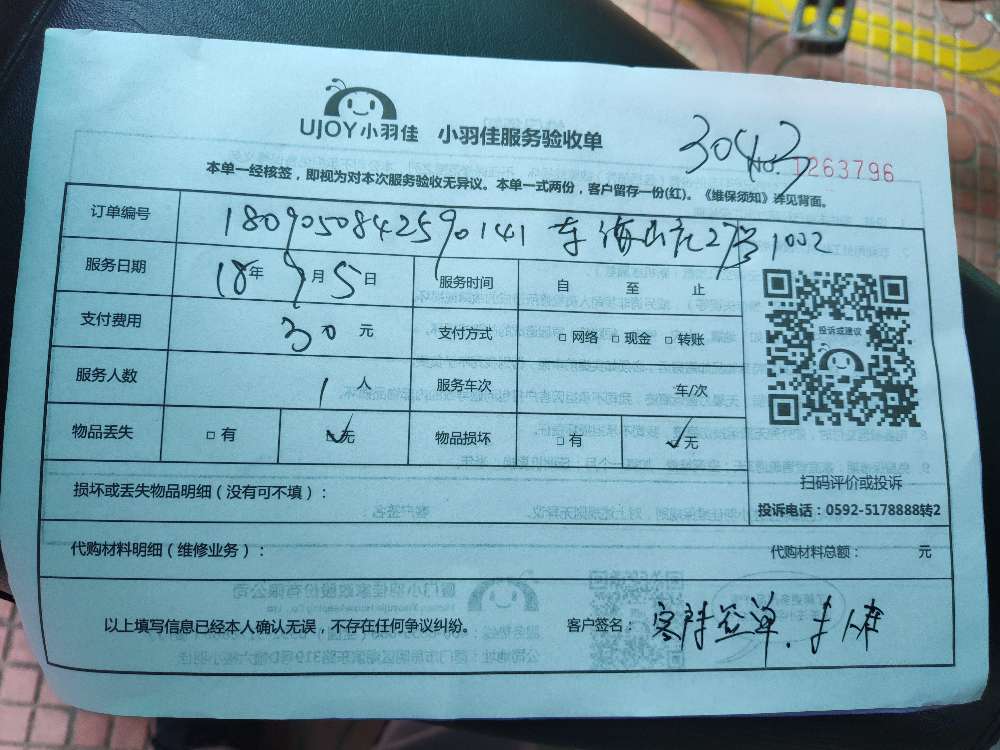 UJOY小羽佳 小羽佳服务验收单
3042
No. 1263796
本单一经核签，即视为对本次服务验收无异议。本单一式两份，客户留存一份(红)。《维保须知》详见背面。
订单编号 1809050842590141 27号1002
服务日期 18年9月5日 服务时间 自 至 止
支付费用 30元 支付方式 □网络 □现金 □转账
服务人数 1人 服务车次 车/次
物品丢失 □有 ☑无 物品损坏 □有 ☑无
投诉或建议
扫码评价或投诉
投诉电话：0592-5178888转2
损坏或丢失物品明细（没有可不填）：
代购材料明细（维修业务）： 代购材料总额： 元
以上填写信息已经本人确认无误，不存在任何争议纠纷。 客户签名：